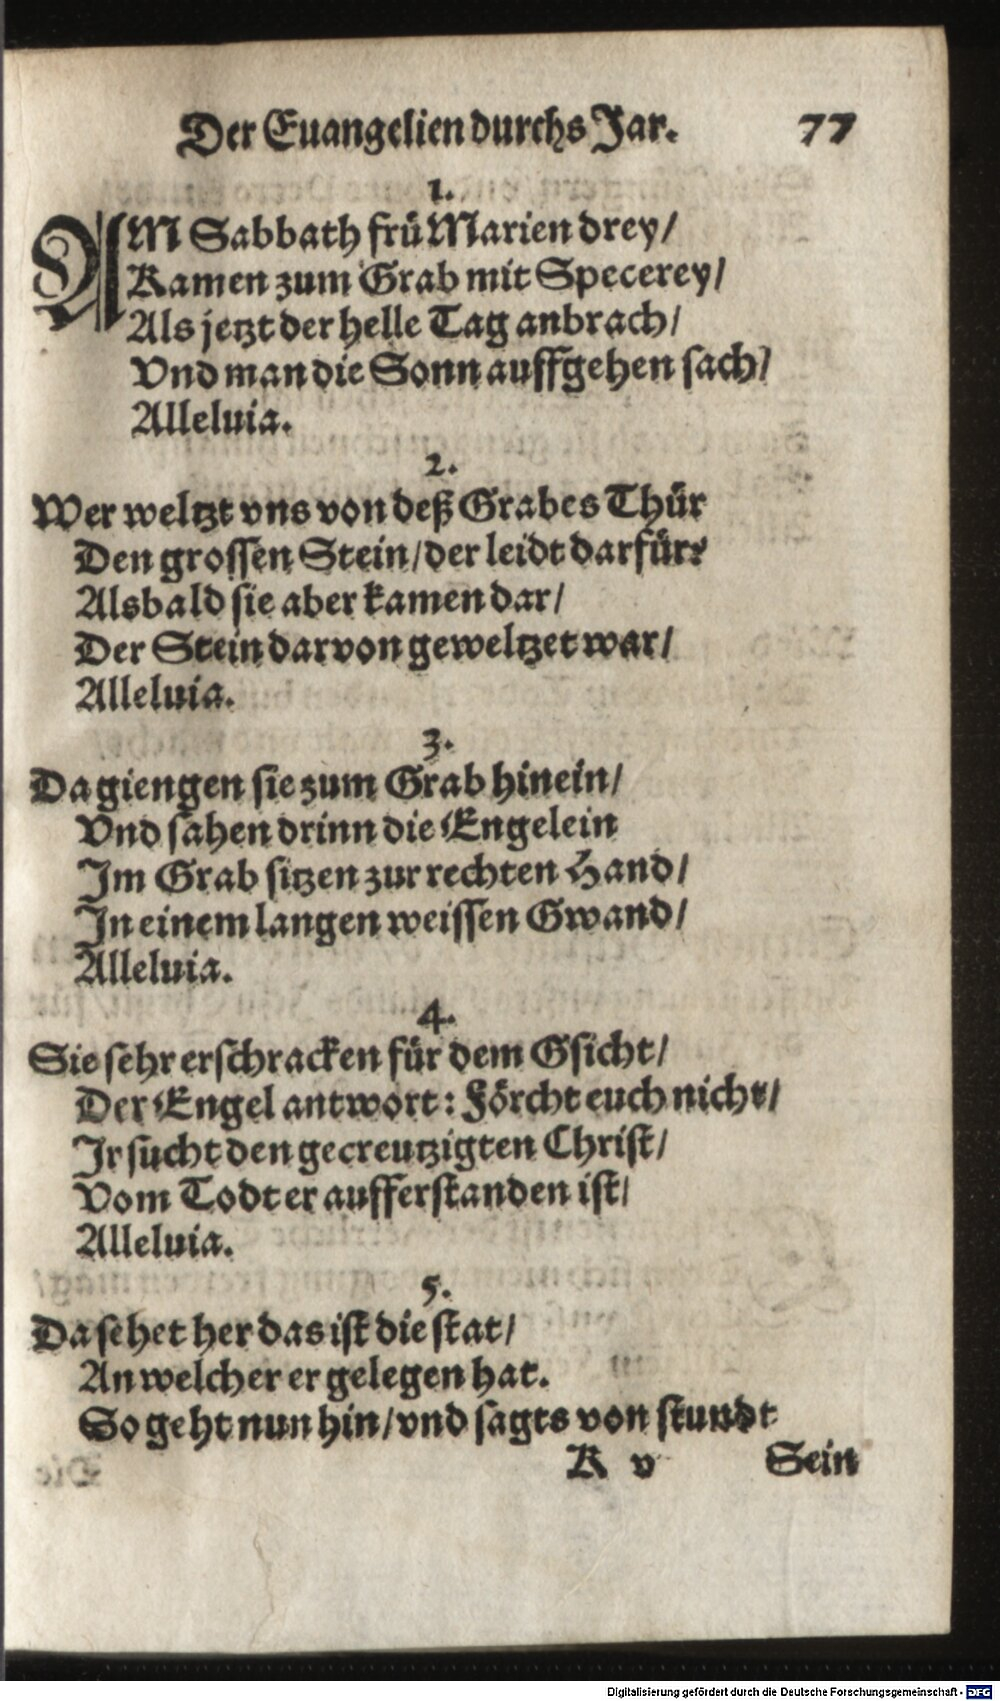 Der Euangelien durchs Jar. 77
1.
AM Sabbath frü Marien drey/
Kamen zum Grab mit Specerey/
Als jetzt der helle Tag anbrach/
Vnd man die Sonn auffgehen sach/
Alleluia.
2.
Wer weltzt vns von deß Grabes Thür
Den grossen Stein/ der leidt darfür?
Alsbald sie aber kamen dar/
Der Stein darvon geweltzet war/
Alleluia.
3.
Da giengen sie zum Grab hinein/
Vnd sahen drinn die Engelein
Im Grab sitzen zur rechten Hand/
In einem langen weissen Gwand/
Alleluia.
4.
Sie sehr erschracken für dem Gsicht/
Der Engel antwort: Förcht euch nicht/
Ir sucht den gecreutzigten Christ/
Vom Todt er aufferstanden ist/
Alleluia.
5.
Da sehet her das ist die stat/
An welcher er gelegen hat.
So geht nun hin/ vnd sagts von stundt
K v Sein
Digitalisierung gefördert durch die Deutsche Forschungsgemeinschaft - DFG